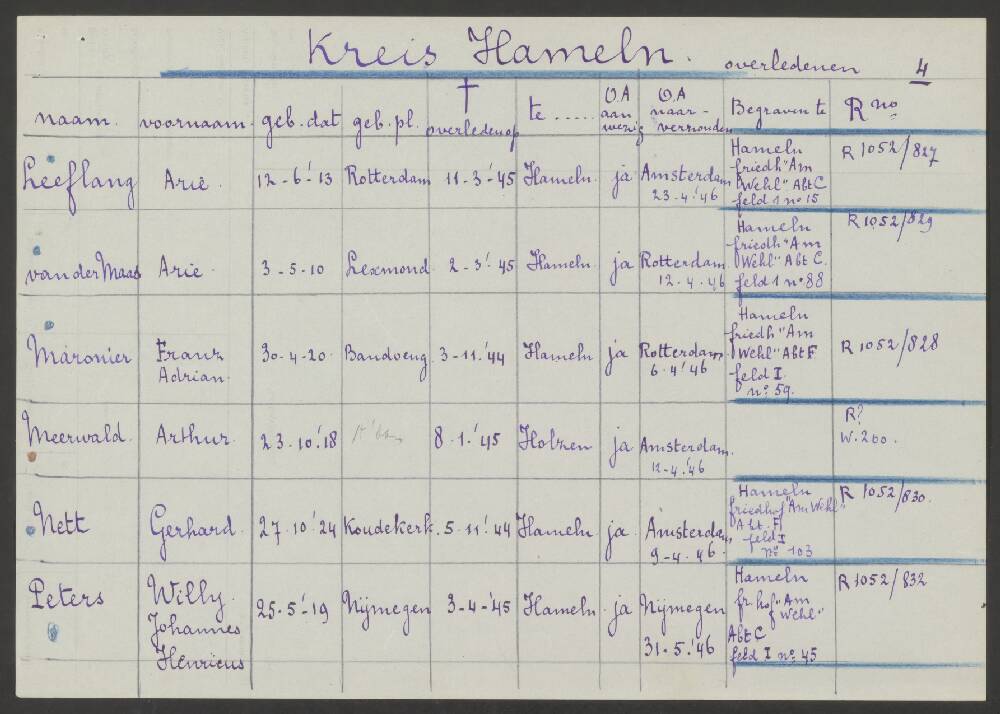 Kreis Hameln. overledenen 4
naam. voornaam geb. dat geb. pl. † overleden op te ..... O.A aan wezig O.A naar- verzonden Begraven te R no
Leeflang Arie 12-6-'13 Rotterdam 11-3-'45 Hameln. ja Amsterdam R 1052/827
23-4-'46
Hameln
friedh "Am
Wehl" Abt C
feld 1 no 15
van der Maas Arie 3-5-10 Lexmond 2-3-'45 Hameln. ja Rotterdam R 1052/829
12.4.46
Hameln
friedh "Am
Wehl" Abt C.
feld 1 no 88
Maronier Franz 30-4-20 Bandoeng 3-11-'44 Hameln ja Rotterdam R 1052/828
Adrian. 6-4-'46
Hameln
friedh "Am
Wehl" Abt F
feld I
no 59.
Meerwald. Arthur. 23.10.'18 8.1.'45 Holzen ja Amsterdam. R?
12-4.'46 W.200.
Nett Gerhard. 27.10.'24 Koudekerk. 5-11-'44 Hameln ja. Amsterdam R 1052/830.
9-4.46.
Hameln
friedhof "Am Wehl"
Abt. F
feld I
no 103
Peters Willy 25-5-'19 Nijmegen 3-4-'45 Hameln. ja Nijmegen R 1052/832
Johannes 31.5.'46
Henricus
Hameln
fr. hof "Am
Wehl"
Abt C
feld I no 45